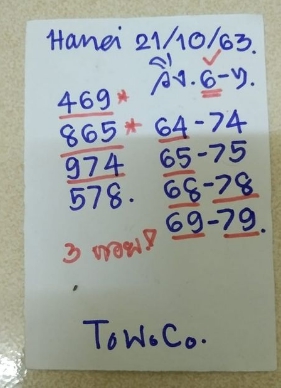 Hanoi 21/10/63.
วิ่ง. 6-7.
469*
865* 64-74
974 65-75
578. 68-78
69-79.
3
ToWoCo.